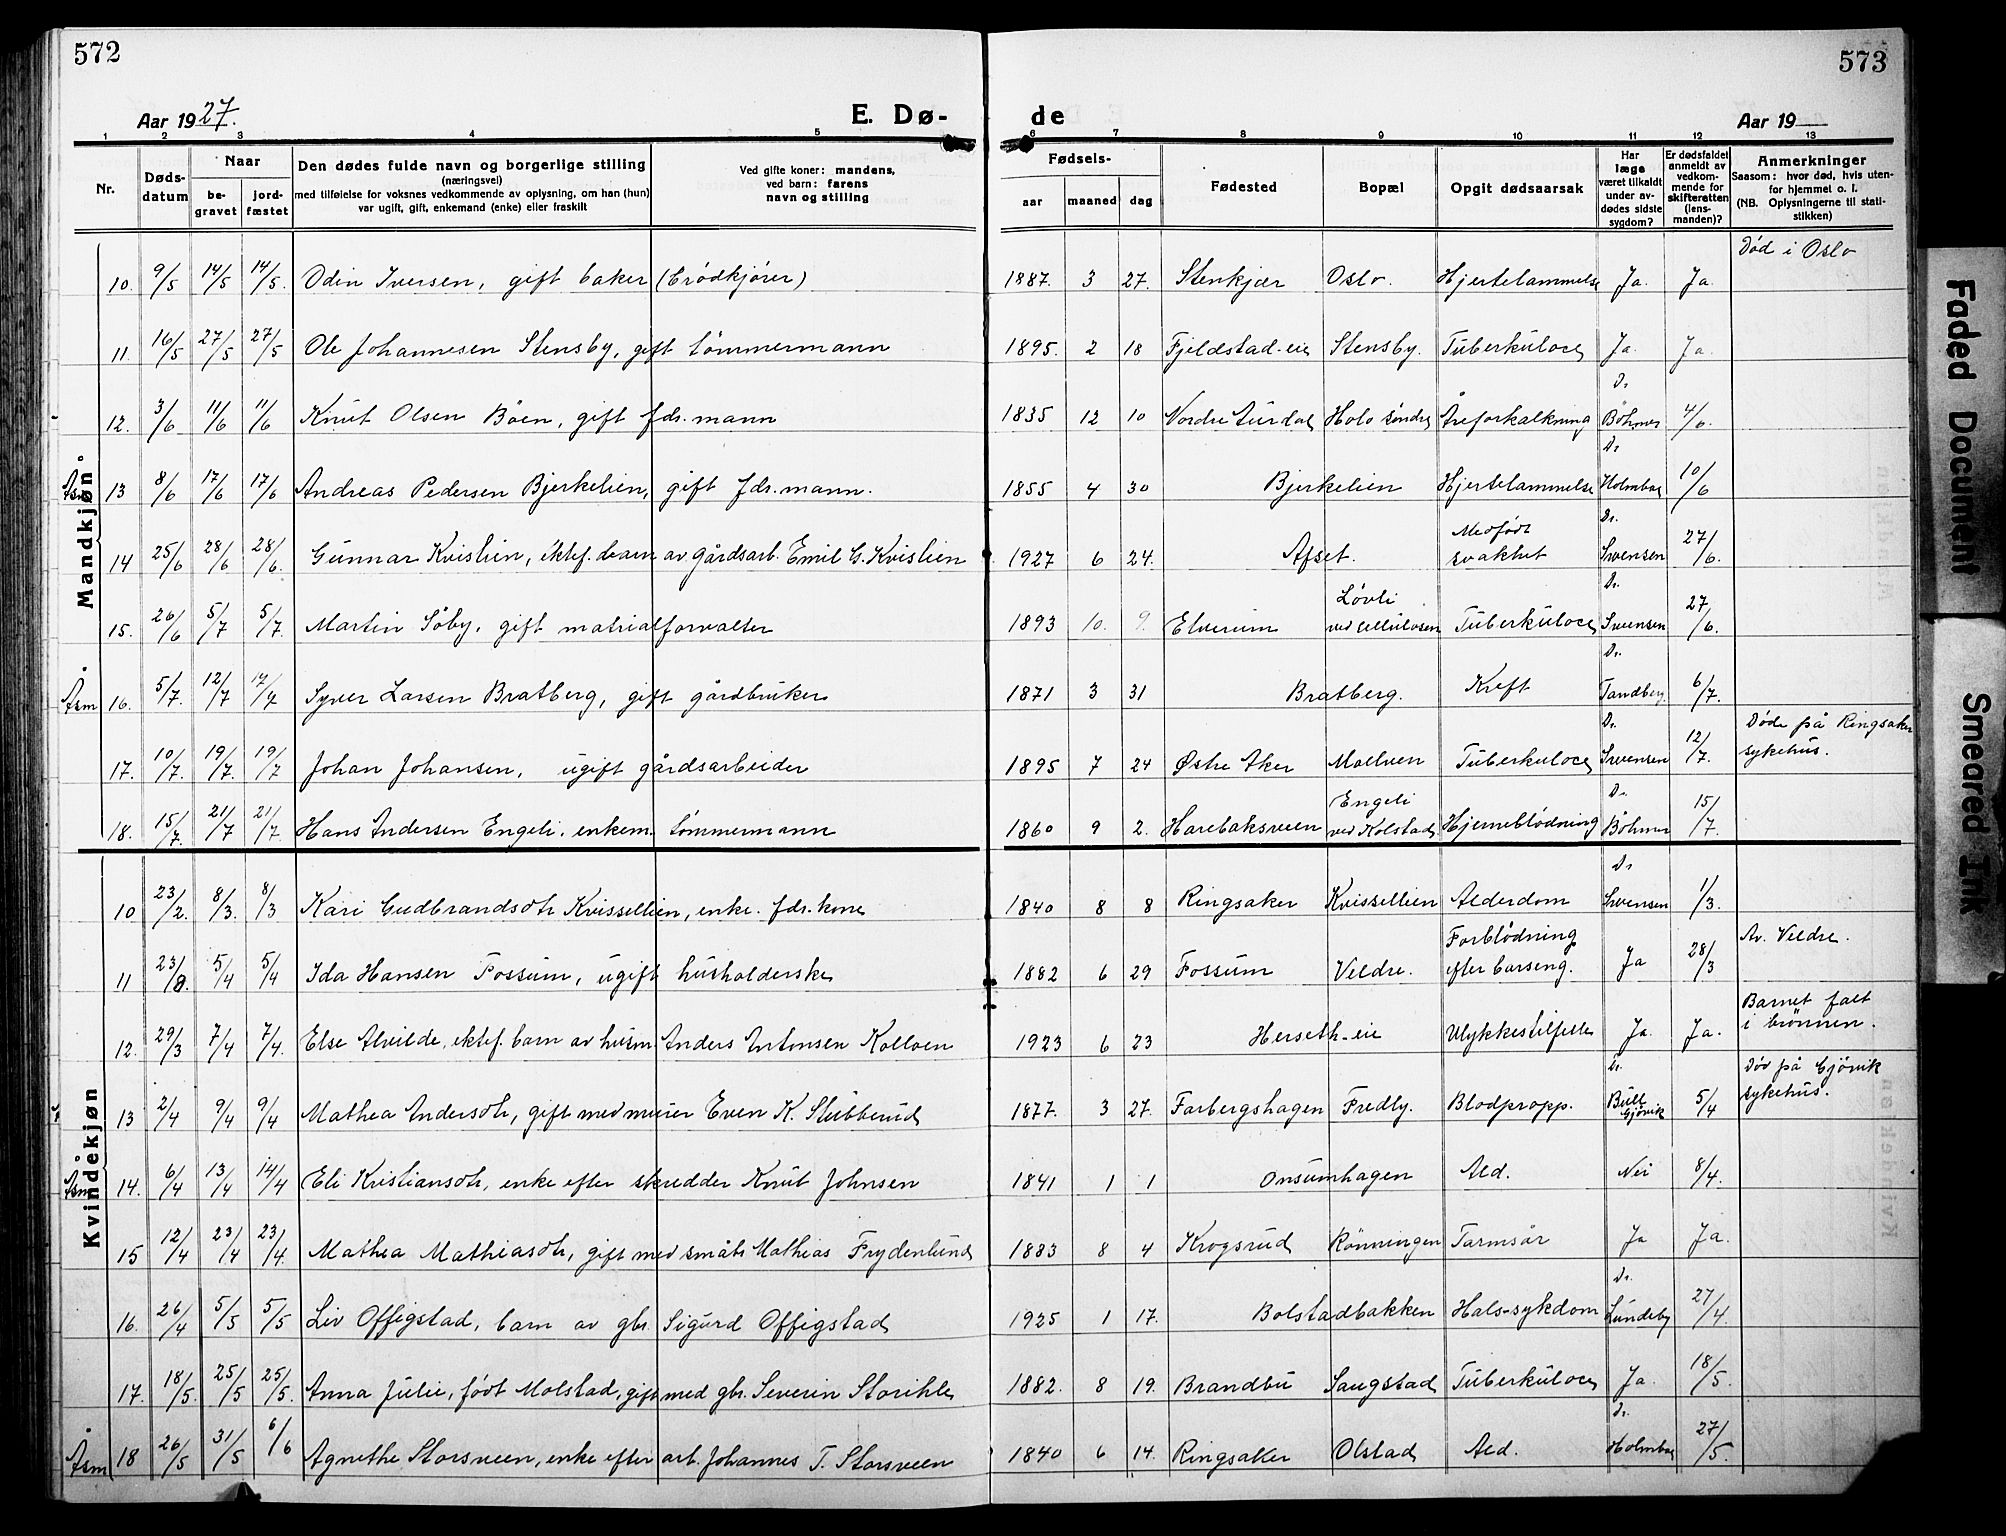 572
573
Aar 1927.
E. Dø-
de
Aar 19
1 2 3 4 5 6 7 8 9 10 11 12 13
Nr.
Døds-datum
Naar
be-gravet
jord-fæstet
Den dødes fulde navn og borgerlige stilling
(næringsvei)
med tilføielse for voksnes vedkommende av oplysning, om han (hun)
var ugift, gift, enkemand (enke) eller fraskilt
Ved gifte koner: mandens,
ved barn: farens
navn og stilling
Fødsels-
aar maaned dag
Fødested
Bopæl
Opgit dødsaarsak
Har læge været tilkaldt under av-dødes sidste sygdom?
Er dødsfaldet anmeldt av vedkom-mende for skifteretten (lens-manden)?
Anmerkninger
Saasom: hvor død, hvis uten-for hjemmet o. l.
(NB. Oplysningerne til stati-stikken)
Mandkjøn
10. 9/5 14/5 14/5. Odin Iversen, gift baker (brødkjører) 1887. 3 27. Stenkjær Oslo. Hjertelammelse Ja. Ja. Død i Oslo
11. 16/5 27/5 27/5 Ole Johannesen Stensby, gift tømmermann 1895. 2 18 Fjeldstad-eie Stensby. Tuberkulose Ja. Ja.
12. 3/6 11/6 11/6 Knut Olsen Bøen, gift fdr.mann 1835 12 10 Nordre Aurdal Holo søndre Åreforkalkning Dr Bøhmer 4/6.
Åsm 13 8/6 17/6 17/6 Andreas Pedersen Bjerkelien, gift fdr.mann. 1855 4 30 Bjerkelien Hjertelammelse Dr Holmboe 10/6
14 25/6 28/6 28/6. Gunnar Kvislien, ektef. barn av gårdsarb. Emil G. Kvislien 1927 6 24. Afset. Medfødt svakhet Dr. Svensen 27/6.
15. 26/6 5/7 5/7. Martin Søby, gift matrialforvalter 1893 10. 9. Elverum Løvli ved cellulosen Tuberkulose Dr. Svensen 27/6.
Åsm 16. 5/7. 12/7 17/7 Syver Larsen Bratberg, gift gårdbruker 1871 3 31 Bratberg. Kreft Dr. Tandberg. 6/7.
17. 10/7. 19/7. 19/7 Johan Johansen, ugift gårdsarbeider 1895 7 24 Østre Aker Moelven Tuberkulose Dr. Svensen 12/7. Døde på Ringsaker sykehus.
18. 15/7. 21/7 21/7 Hans Andersen Engeli, enkem. tømmermann 1860 9 2. Harebaksveen Engeli ved Kolstad Hjerneblødning Dr. Bøhmer 15/7.
Kvindekjøn
10 23/2. 8/3. 8/3 Kari Gudbrandsdtr Kvissellien, enke. fdr.kone 1840 8 8 Ringsaker Kvissellien Alderdom Dr. Svensen 1/3.
11 23/8. 5/4 5/4 Ida Hansen Fossum, ugift husholderske 1882 6 29 Fossum Veldre. Forblødning efter barseng. Ja 28/3 Av. Veldre.
12. 29/3 7/4 7/4. Else Alvilde, ektef. barn av husm Anders Antonsen Kolloen 1923 6 23 Herseth-eie Ulykkestilfelle Ja. Ja. Barnet falt i brønnen.
13 2/4 9/4 9/4 Mathea Andersdtr, gift med murer Even K. Stubberud 1877. 3 27. Farbergshagen Fredly. Blodpropp. Dr. Bull Gjøvik 5/4 Død på Gjøvik sykehus.
Åsm 14. 6/4 13/4 14/4 Eli Kristiansdtr, enke efter skredder Knut Johnsen 1841 1 1 Onsumhagen Ald. Nei 8/4.
15 12/4 23/4 23/4. Mathea Mathiasdtr, gift med småbr Mathias Frydenlund 1883 8 4 Krogsrud Rønningen Tarmsår Ja Ja.
16. 26/4 5/5 5/5 Liv Offigstad, barn av gbr. Sigurd Offigstad 1925 1 17. Bolstadbakken Hals-sykdom Dr. Lundeby 27/4.
17. 18/5. 25/5 25/5. Anna Julie, født Molstad, gift med gbr. Severin Storihle 1882. 8 19. Brandbu Saugstad Tuberkulose Ja. 18/5.
Åsm 18 26/5 31/5 6/6 Agnethe Storsveen, enke efter arb. Johannes T. Storsveen 1840 6 14. Ringsaker Olstad Ald. Dr. Holmboe 27/5.
Faded Document
Smeared Ink